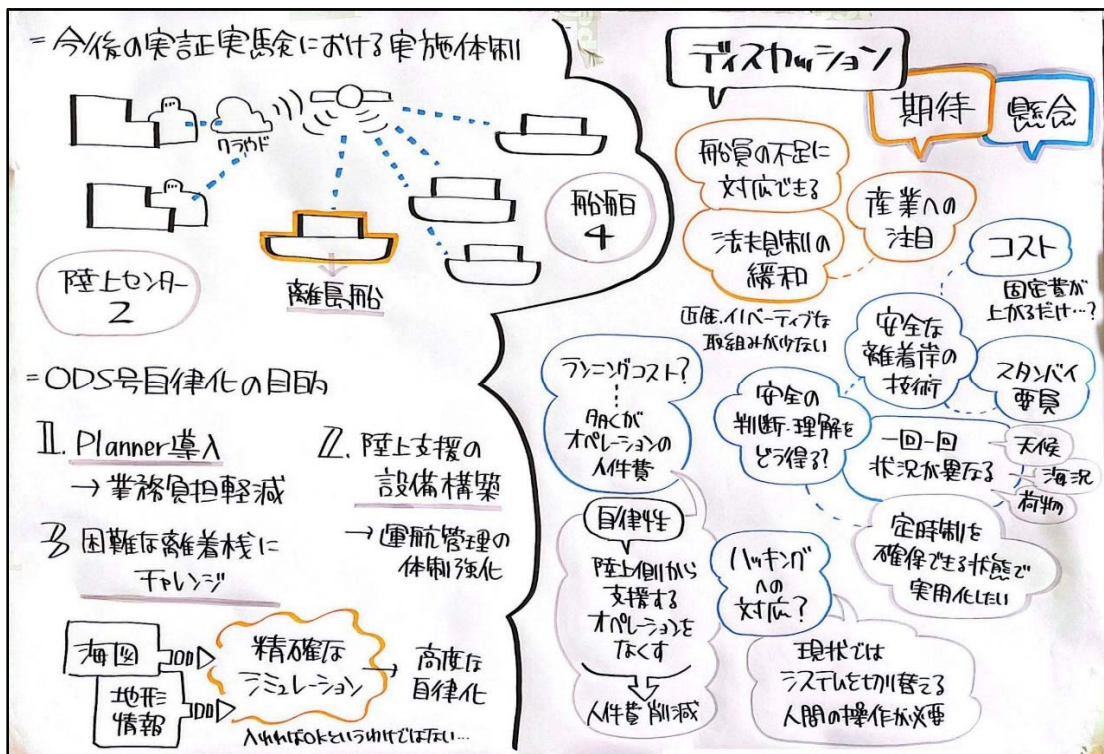 = 今後の実証実験における実施体制
クラウド
陸上センター
2
離島船
船舶
4
= ODS号自律化の目的
1. Planner導入
→ 業務負担軽減
2. 陸上支援の
設備構築
→ 運航管理の
体制強化
3 困難な離着桟に
チャレンジ
海図
地形
情報
精確な
シミュレーション
→ 高度な
自律化
入れればOKというわけではない…
ディスカッション
期待
懸念
船員の不足に
対応できる
産業への
注目
法規制の
緩和
近年、イノベーティブな
取組みが少ない
コスト
固定費が
上がるだけ…?
安全な
離着岸の
技術
スタンバイ
要員
安全の
判断・理解を
どう得る?
一回一回
状況が異なる
天候
海況
荷物
定時制を
確保できる状態で
実用化したい
ランニングコスト?
多くが
オペレーションの
人件費
自律性
陸上側から
支援する
オペレーションを
なくす
人件費削減
ハッキング
への
対応?
現状では
システムを切り替える
人間の操作が必要